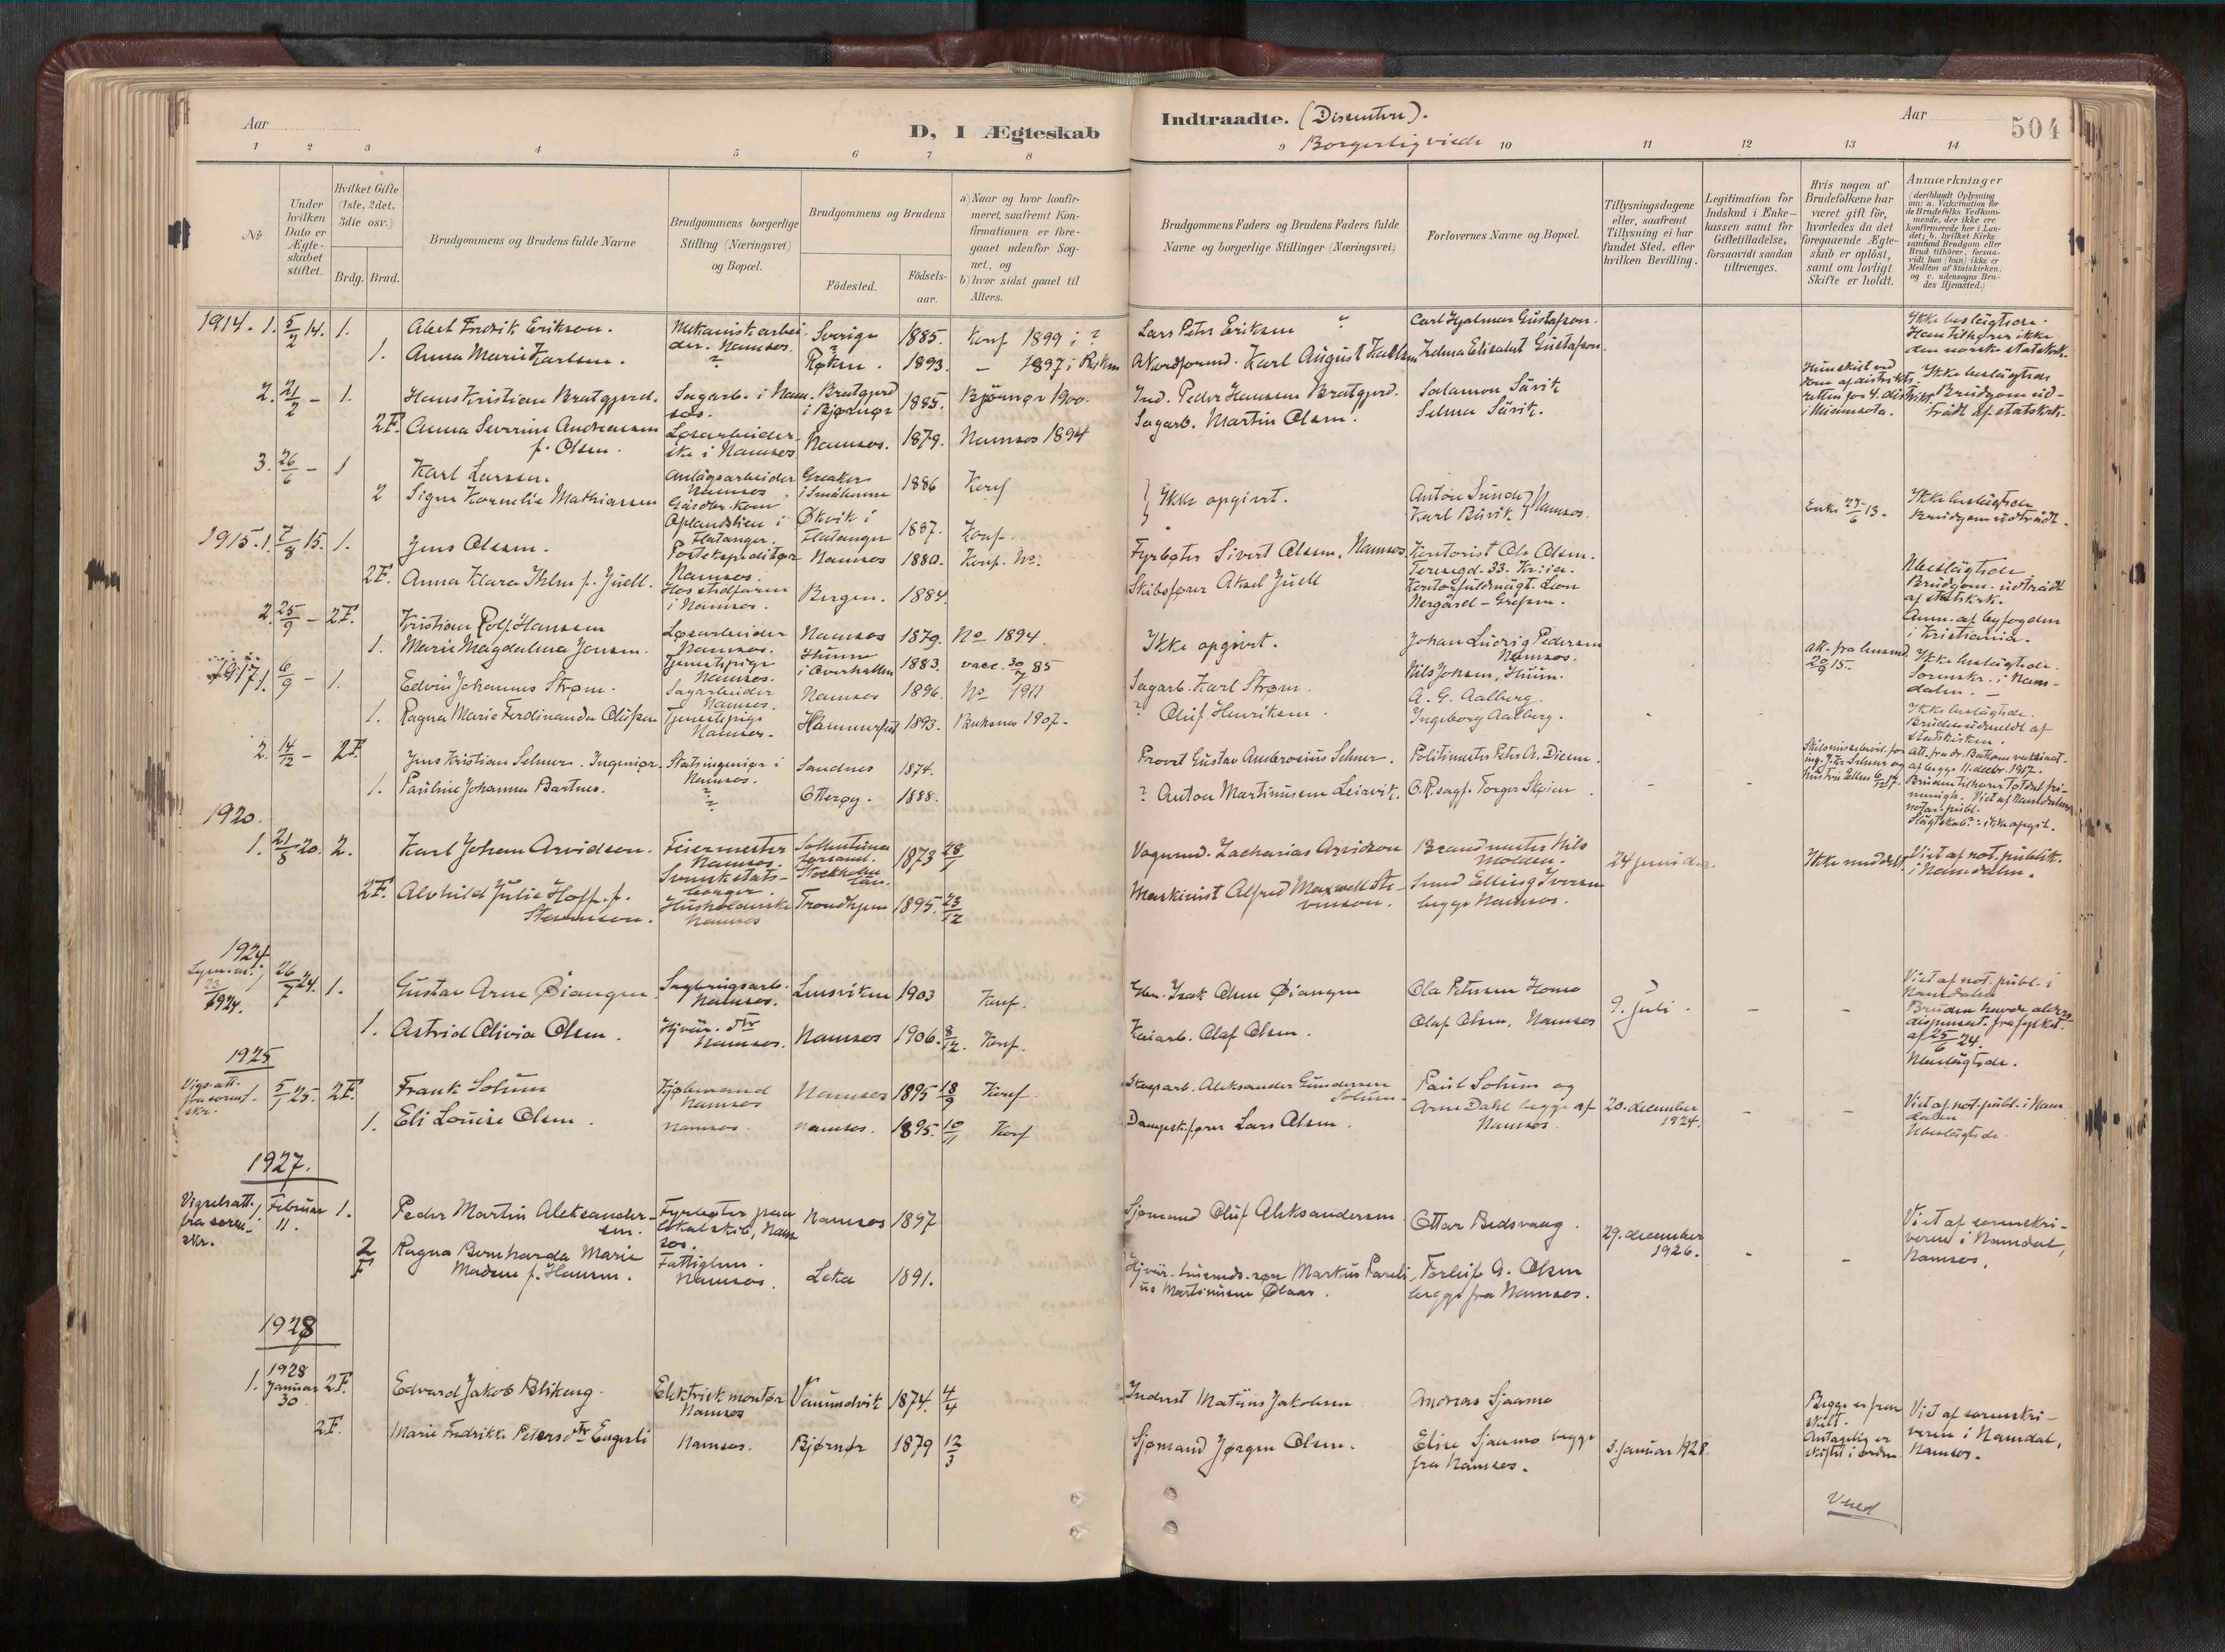 Aar
D, I Ægteskab
Indtraadte. (Dissentere).
Borgerlig viede
Aar
504
1 2 3 4 5 6 7 8 9 10 11 12 13 14
No
Under hvilken Dato er Ægteskabet stiftet.
Hvilket Gifte (1ste, 2det, 3die osv.)
Brdg. Brud.
Brudgommens og Brudens fulde Navne
Brudgommens borgerlige Stilling (Næringsvei) og Bopæl.
Brudgommens og Brudens
Födested.
Födselsaar.
a) Naar og hvor konfirmeret, saafremt Konfirmationen er foregaaet udenfor Sognet, og
b) hvor sidst gaaet til Alters.
Brudgommens Faders og Brudens Faders fulde Navne og borgerlige Stillinger (Næringsvei)
Forlovernes Navne og Bopæl.
Tillysningsdagene eller, saafremt Tillysning ei har fundet Sted, efter hvilken Bevilling.
Legitimation for Indskud i Enkekassen samt for Giftetilladelse, forsaavidt saadan tiltrænges.
Hvis nogen af Brudefolkene har været gift för, hvorledes da det foregaaende Ægteskab er oplöst, samt om lovligt Skifte er holdt.
Anmærkninger
(deriblandt Oplysning om: a. Vakcination for de Brudefolks Vedkommende, der ikke ere konfirmerede her i Landet; b. hvilket Kirkesamfund Brudgom eller Brud tilhörer, forsaavidt han (hun) ikke er Medlem af Statskirken, og c. udensogns Brudes Hjemsted.)
1914. 1. 5/2 14. 1. Abel Fredrik Erikson. Mekanisk arbeider. Namsos. Sverige 1885. Konf 1899 i ? Lars Peter Erikson ? Carl Hjalmar Gustafson. Ikke beslægtede. Han tilhører ikke den norske statskk.
1. Anna Marie Karlsen. ? Røken. 1893. – 1897 i Røken Karl August Karlsen Elisabet Gustafson.
2. 21/2 – 1. Hans Kristian Bratgjerd. Sagarb. i Namsos. Bratgjerd i Bjørnør 1885. Bjørnør 1900. Ind. Peder Hanssen Bratgjerd. Salamon Sævik Ikke beslægtede Brudgom udtrådt af statskk.
2F. Anna Severine Andreassen f. Olsen. Løsarbeiderske i Namsos Namsos. 1879. Namsos 1894 Sagarb. Martin Olsen. Selma Sævik.
3. 26/6 – 1 Karl Larssen. Anlægsarbeider Namsos Greaker i Smålenene 1886 Konf Ikke opgivt. Anton Sunde Karl Bævik. Namsos. Enke 27/6 13. Ikke beslægtede Brudgom udtrådt.
2 Signe Kornelie Mathiassen Økvik i Flatanger 1887. Konf.
1915. 1. 7/8 15. 1. Jens Olssen. Postekspeditør Namsos. Namsos 1880. Konf. No. Fyrbøter Sivert Olssen, Namsos Kontorist Ole Olsen. Ubeslægtede Brudgom. udtrådt af statskk.
2F. Anna Klara Ihlen f. Juell. Hos stedfaren i Namsos. Bergen. 1884. Skibsfører Aksel Juell
2. 25/9 – 2F. Kristian Rolf Hanssen Løsarbeider Namsos. Namsos 1879. No 1894. Ikke opgivt. Johan Ludvig Pedersen Namsos. Ikke beslægtede. Sorenskr. i Namdalen. –
1. Marie Magdalena Jensen. Tjenestepige Namsos. i Overhallen 1883. vacc. 30/7 85 Nils Jonsen,
1917. 1. 6/9 – 1. Edvin Johannes Strøm. Sagarbeider Namsos. Namsos 1896. No 1911 Sagarb. Karl Strøm. A. G. Aalberg. Ikke beslægtede. Bruden udmeldt af statskirken.
1. Ragna Marie Ferdinanda Olufsen Tjenestepige Namsos. Hammerfest 1893. 1907. ? Oluf Henriksen. Ingeborg Aalberg.
2. 14/12 – 2F. Jens Kristian Selmer. Ingeniør. Statsingeniør i Namsos. Sandnes 1874. Provst Gustav Ambrosius Selmer. Politimester Peter A. Diesen.
1. Pauline Johanna Bartnes. ? Otterøy. 1888. ? Anton Martinussen Leirvik. O.R.sagf. Torger Skjeien.
1920.
1. 21/8 20. 2. Karl Johan Arvidson. Feiermester Namsos. Svensk statsborger. Sollentuna forsaml. Stockholm län. 1873 28/1 Vognmd. Zacharias Arvidson Brandmester Nils Molden. 24 juni d.a. Ikke meddelt Viet af not. publik. i Namdalen.
2F. Alvhild Julie Hoff f. Stevenson. Husholderske Namsos Trondhjem 1895. 23/12 Maskinist Alfred Maxwell Stevenson. Smed Elling Iversen begge Namsos.
1924
26/7 24. 1. Gustav Arne Øiangen. Sagbrugsarb. Namsos. Lensviken 1903 Konf. Isak Olsen Øiangen Ola Petersen Homo 9. juli. – – Viet af not. publ. i Namdalen Bruden havde aldersdispensat. fra fylket. af 25/6 24. Ubeslægtede.
1. Astrid Olivia Olsen. Hjvær. dtr Namsos. Namsos 1906. 8/12. Konf. Kaiarb. Olaf Olsen. Olaf Olsen, Namsos
1925
Vigs.att. fra sorenskr. 1. 5/1 25. 2F. Frank Solum Kjøbmand Namsos Namsos 1895 18/9 Konf. Skogsarb. Aleksander Gundersen Solum Paul Solum og Arne Dahl begge af Namsos. 20. december 1924. – – Viet af not. publ. i Namdalen Ubeslægtede.
1. Eli Louise Olsen. Namsos. Namsos. 1895. 10/11 Konf Dampsk.fører Lars Olsen.
1927.
Vigselsatt. fra sorenskr. 1. Februar 11. 1. Peder Martin Aleksandersen. Fyrbøter paa lokalskib, Namsos. Namsos 1897 Sjømand Oluf Aleksandersen Ottar Bedsvaag. 29. december 1926. – – Viet af sorenskriveren i Namdal, Namsos.
2F Ragna Bernharda Marie Madsen f. Hansen. Fattiglem. Namsos. Leka 1891. Torleif A. Olsen begge fra Namsos.
1928
1. 1928 Januar 30. 2F. Edvard Jakob Blikeng. Elektrisk montør Namsos Vemundvik 1874. 4/4 Inderst Matæus Jakobsen Andreas Sjaamo Begge er fraskilt. Antagelig er skiftet i orden Viet af sorenskriveren i Namdal, Namsos.
2F. Marie Fredrikke Petersdtr Engesli Namsos. Bjørnør 1879 12/3 Sjømand Jørgen Olsen. Elise Sjaamo begge fra Namsos. 3. januar 1928.
Vend